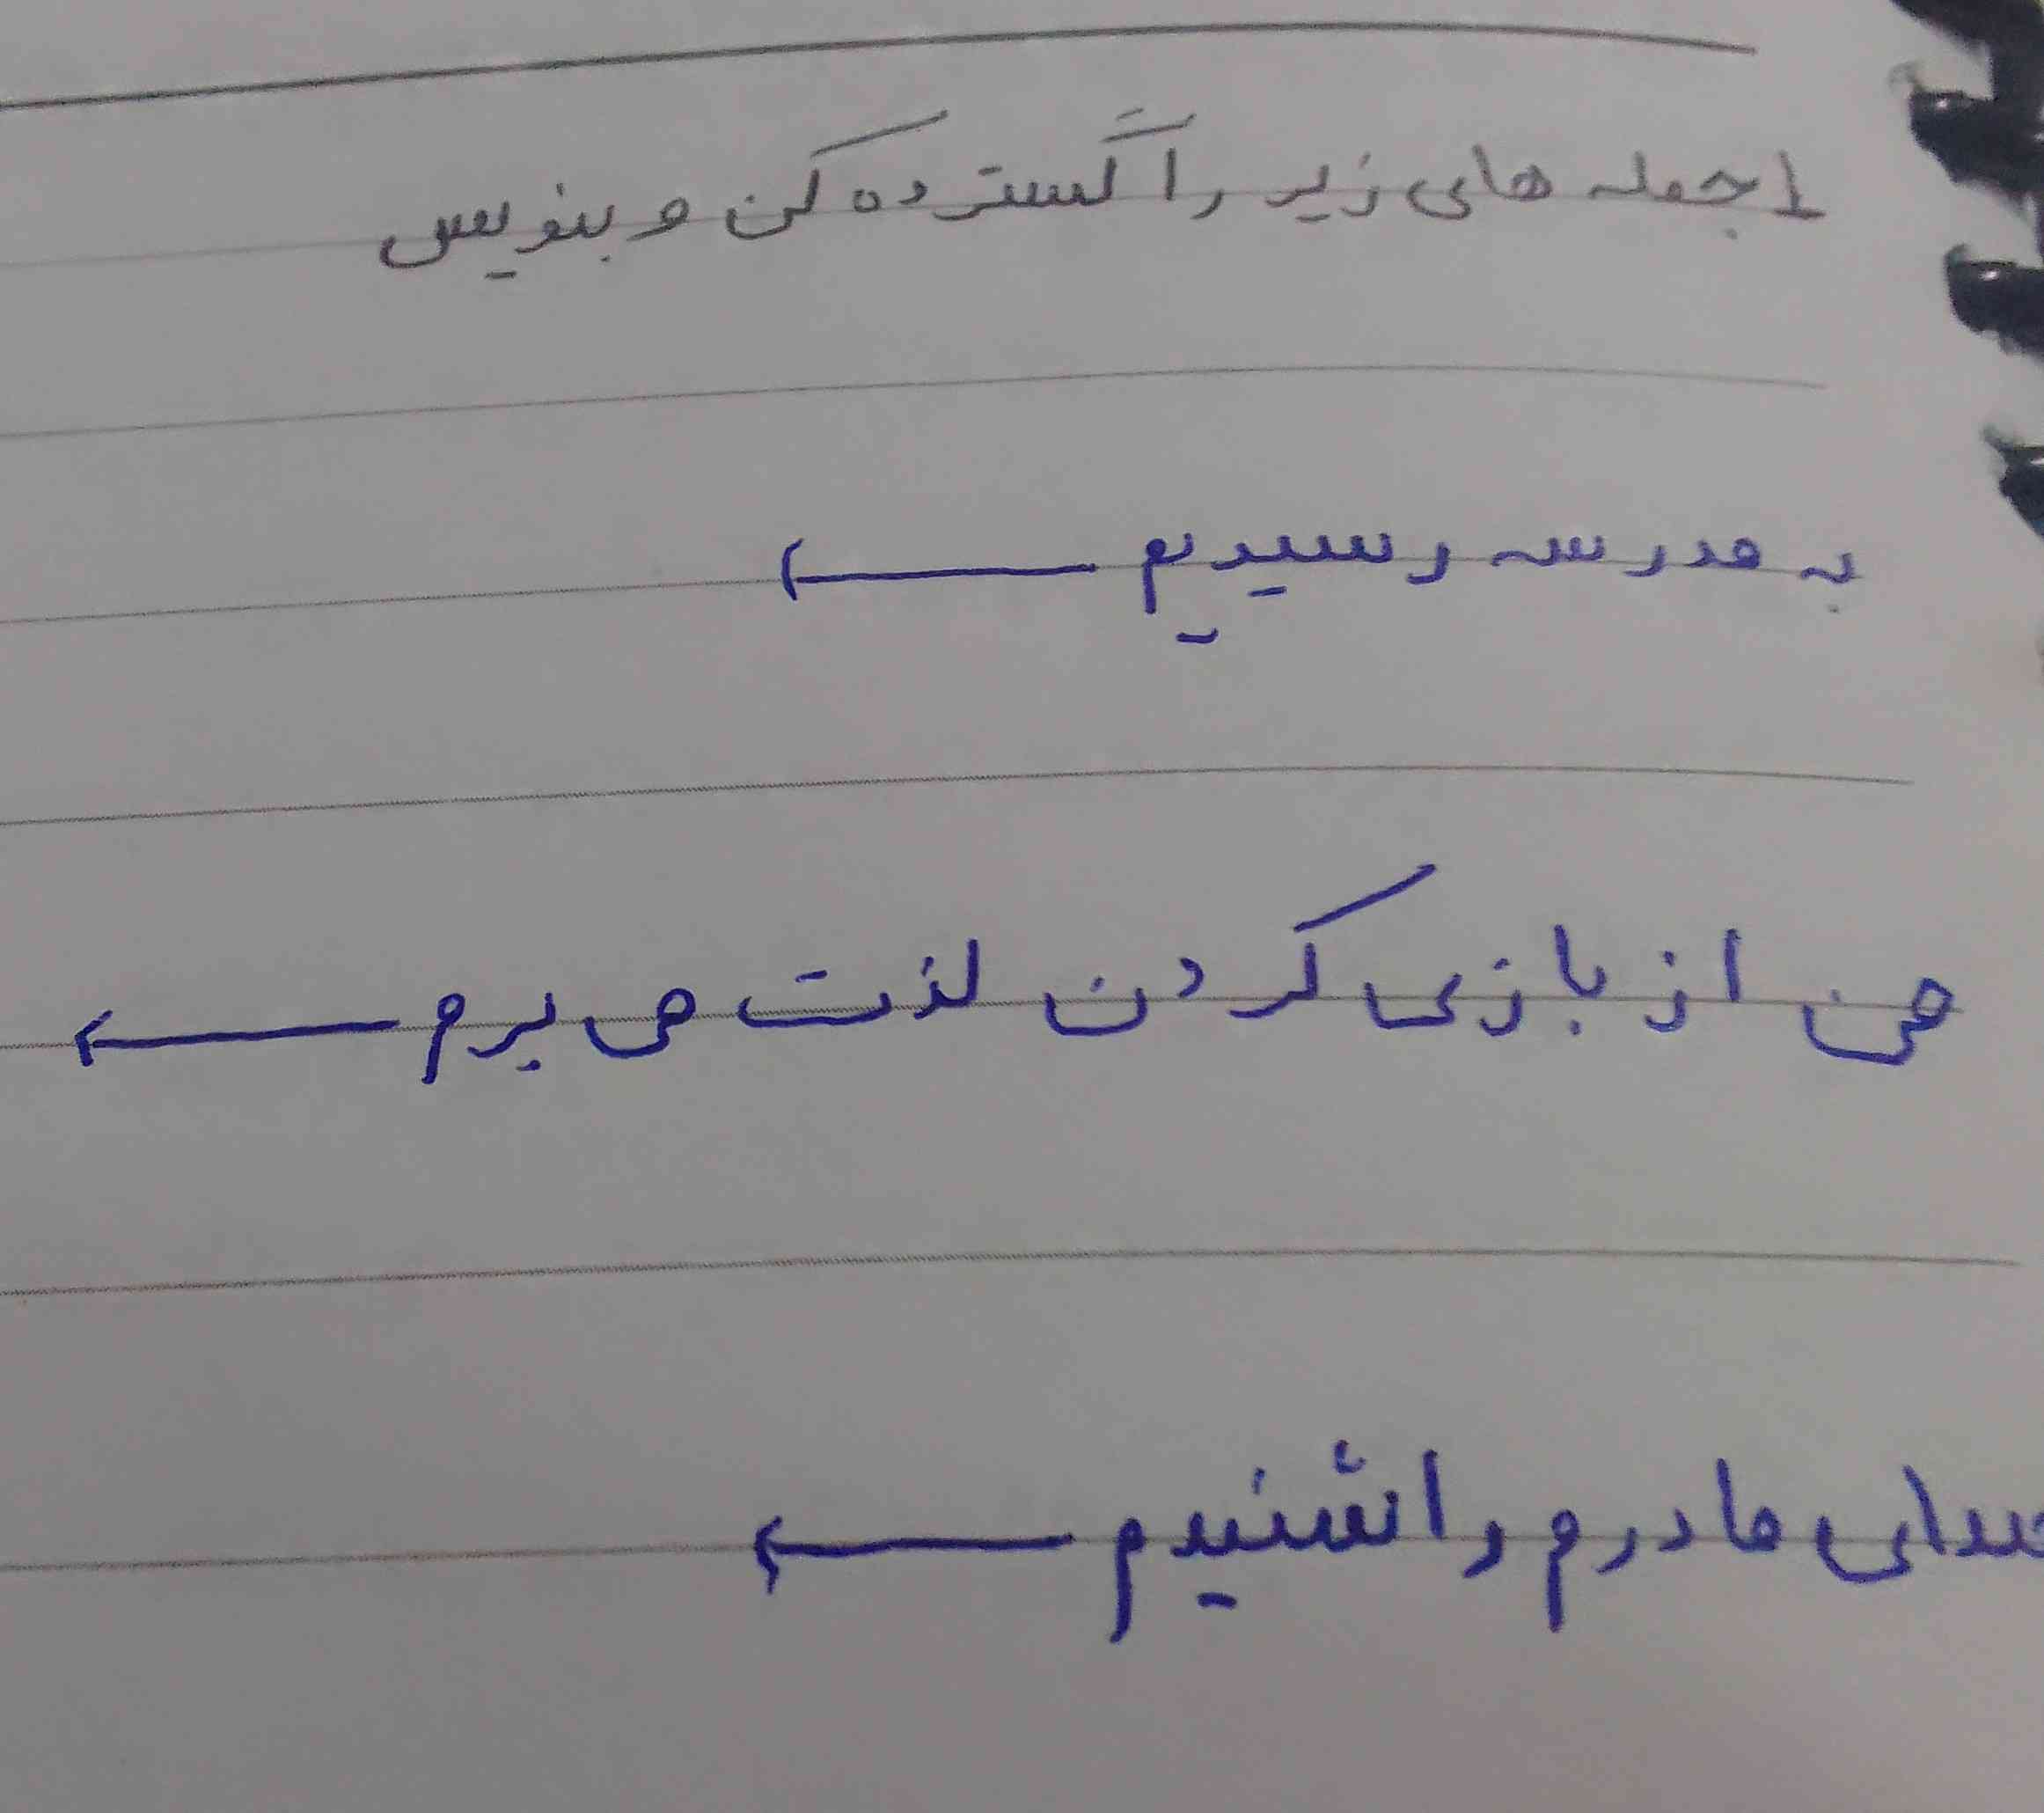 1 جمله های زیر را گسترده کن و بنویس
به مدرسه رسیدیم ←
من از بازی کردن لذت می برم ←
صدای مادرم را شنیدم ←